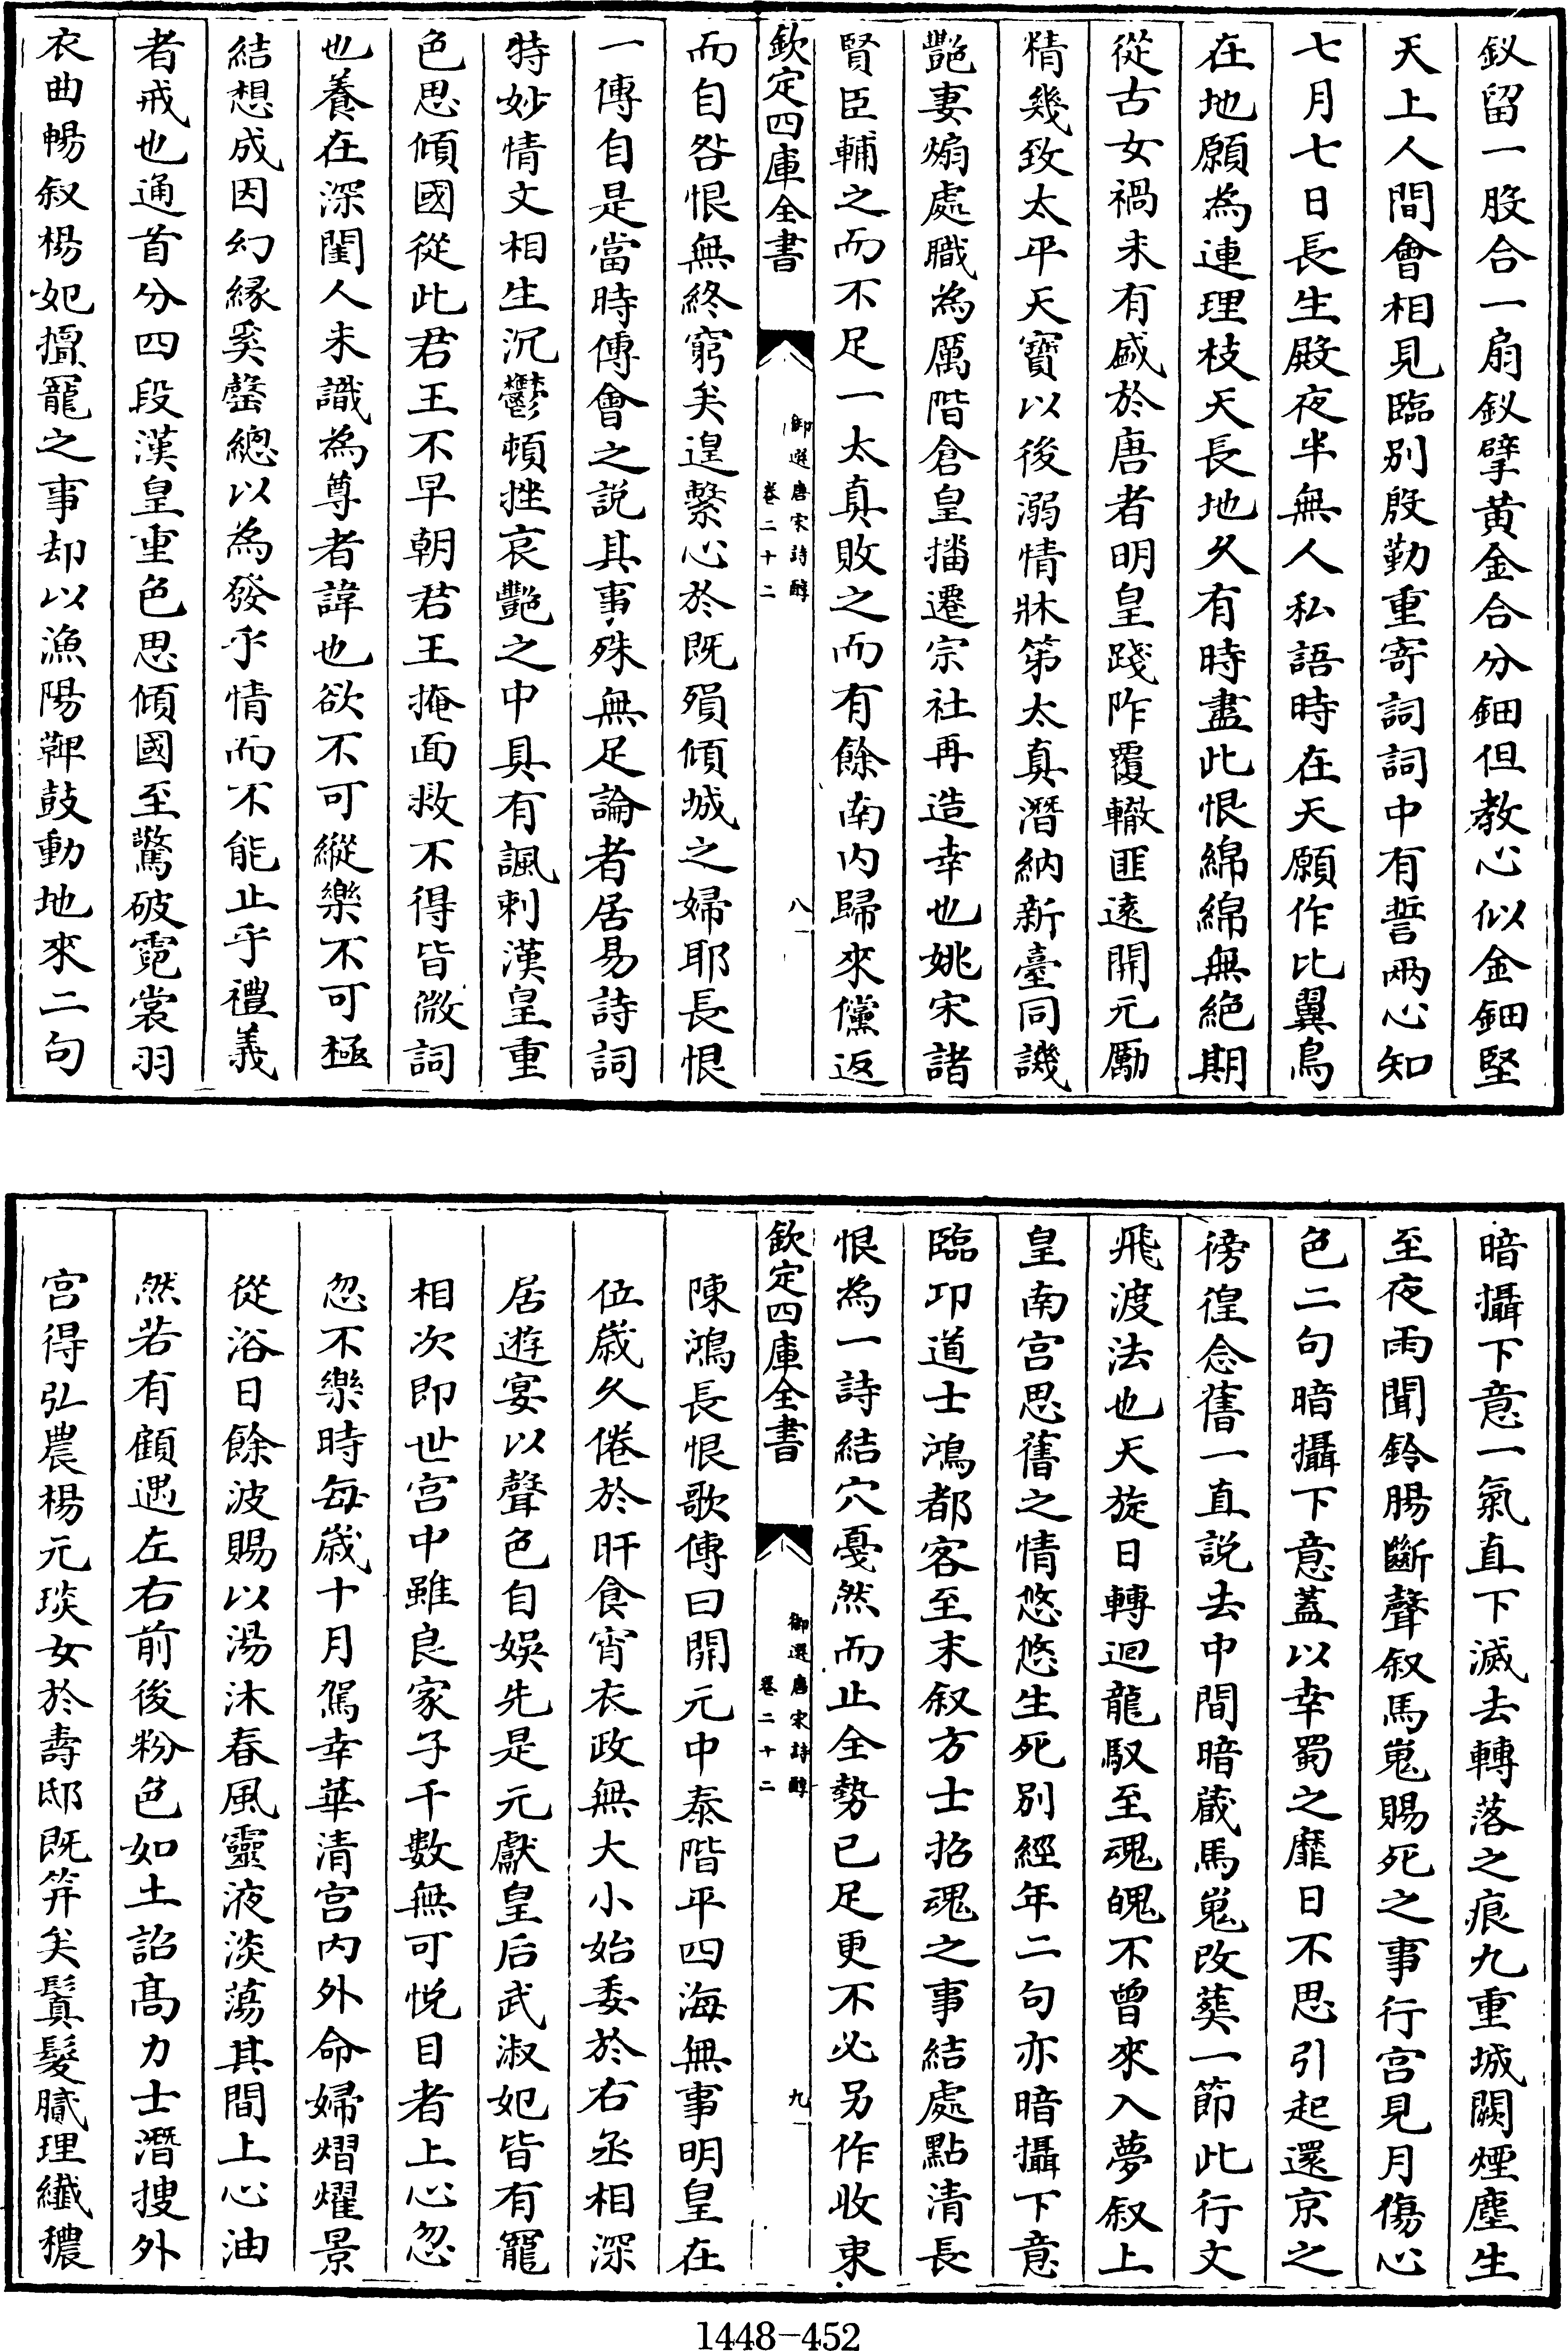 釵留一股合一扇釵擘黄金合分鈿但教心似金鈿堅
天上人間會相見臨别殷勤重寄詞詞中有誓兩心知
七月七日長生殿夜半無人私語時在天願作比翼鳥
在地願為連理枝天長地久有時盡此恨綿綿無絶期
從古女禍未有盛於唐者明皇踐阼覆轍匪遠開元勵
精幾致太平天寶以後溺情牀笫太真潛納新臺同譏
艷妻煽處職為厲階倉皇播遷宗社再造幸也姚宋諸
賢臣輔之而不足一太真敗之而有餘南内歸來儻返
欽定四庫全書
御選唐宋詩醇
卷二十二
八
而自咎恨無終窮矣遑繫心於既殞傾城之婦耶長恨
一傳自是當時傅會之説其事殊無足論者居易詩詞
特妙情文相生沉鬱頓挫哀艷之中具有諷刺漢皇重
色思傾國從此君王不早朝君王掩面救不得皆微詞
也養在深閨人未識為尊者諱也欲不可縱樂不可極
結想成因幻緣奚罄總以為發乎情而不能止乎禮義
者戒也通首分四段漢皇重色思傾國至驚破霓裳羽
衣曲暢叙楊妃擅寵之事却以漁陽鞞鼓動地來二句
暗攝下意一氣直下滅去轉落之痕九重城闕煙塵生
至夜雨聞鈴腸斷聲叙馬嵬賜死之事行宫見月傷心
色二句暗攝下意蓋以幸蜀之靡日不思引起還京之
徬徨念舊一直説去中間暗藏馬嵬改葬一節此行文
飛渡法也天旋日轉迴龍馭至魂魄不曾來入夢叙上
皇南宫思舊之情悠悠生死别經年二句亦暗攝下意
臨邛道士鴻都客至末叙方士招魂之事結處點清長
恨為一詩結穴戞然而止全勢已足更不必另作收束
欽定四庫全書
御選唐宋詩醇
卷二十二
九
陳鴻長恨歌傳曰開元中泰階平四海無事明皇在
位歲久倦於旰食宵衣政無大小始委於右丞相深
居遊宴以聲色自娱先是元獻皇后武淑妃皆有寵
相次即世宫中雖良家子千數無可悦目者上心忽
忽不樂時每歲十月駕幸華清宫内外命婦熠燿景
從浴日餘波賜以湯沐春風靈液淡蕩其間上心油
然若有顧遇左右前後粉色如土詔髙力士潛搜外
宫得弘農楊元琰女於壽邸既筓矣鬒髮膩理纖穠
1448-452